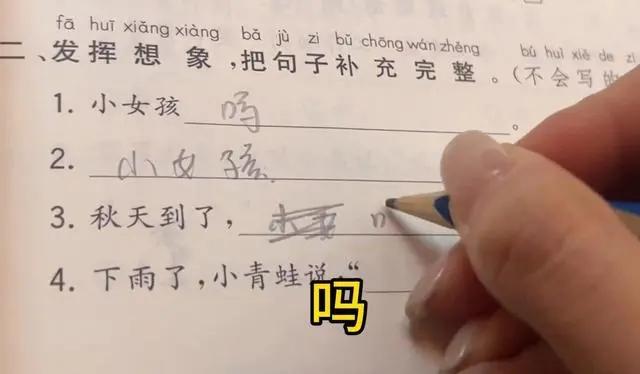 fā huī xiǎng xiàng bǎ jù zi bǔ chōng wán zhěng bú huì xiě de zì
二、发挥想象,把句子补充完整。(不会写的
1. 小女孩 吗 。
2. 小女孩
3. 秋天到了,
4. 下雨了,小青蛙说,“
吗